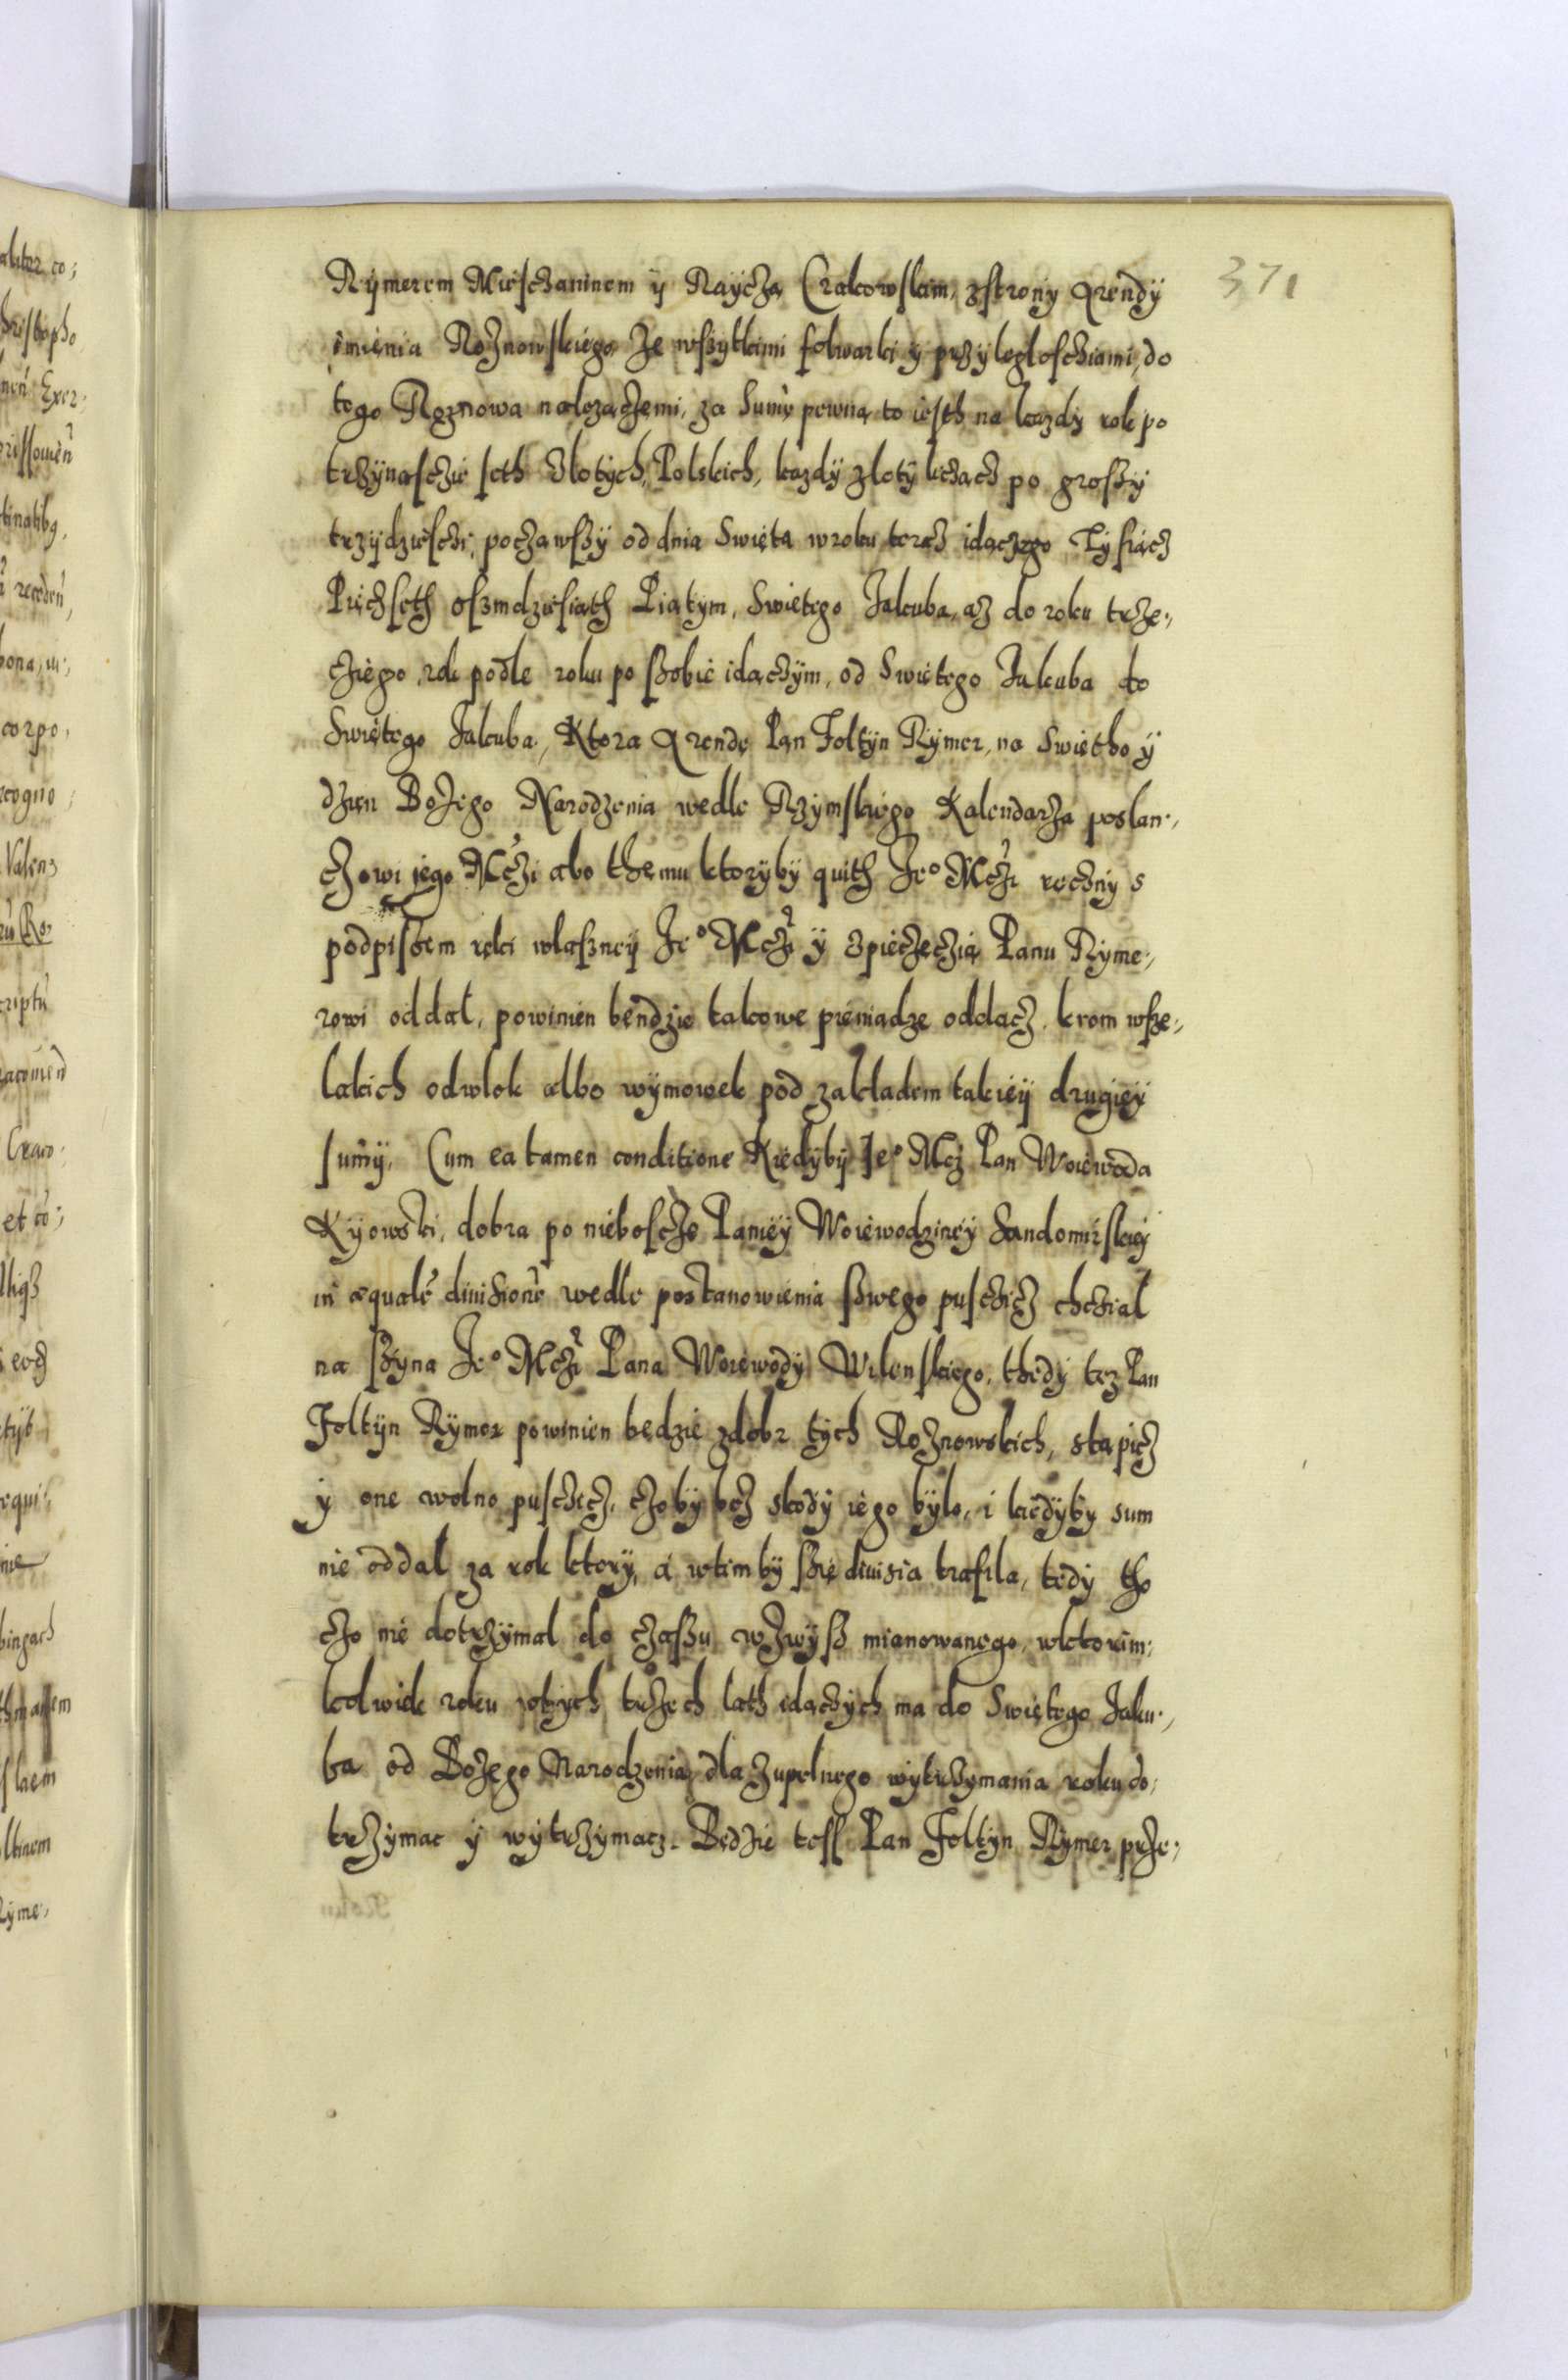 371
Rÿmerem Miesczaninem ÿ Raÿczą Crakowskim, zstronÿ Arendÿ
imienia Roznowskiego ze wszytkimi folwarki ÿ przÿległosciami, do
tego Roznowa nalezączemi, za Sumę pewną to iesth na kazdÿ rok po
trzÿnasczie seth Złotÿch Polskich, kazdÿ złotÿ licząncz po groszÿ
trzÿdziesczi, począwszÿ od dnia Swięta wroku teraz idączego Tÿsiącz
Pięczseth oszmdziesiąth Piątÿm, Swiętego Jakuba, az do roku trze-
cziego, rok podle roku po szobie idączÿm, od Swiętego Jakuba do
Swiętego Jakuba, Ktorą Arendę Pan Foltÿn Rÿmer, na Swiętho ÿ
dzien Bozego Narodzenia wedle Rzÿmskiego Kalendarza poslan-
czowi jego Mczi abo themu ktorÿbÿ quith Je° Mczi ręcznÿ s
podpissem ręki własznei Je° Mczi ÿ spieczęczią Panu Rÿme-
rowi oddał, powinien bendzie takowe pieniądze oddacz, krom wsze-
lakich odwlok albo wÿmowek pod zakładem takieÿ drugieÿ
sumÿ, Cum ea tamen conditione Kiedÿbÿ Je° Mcz Pan Woiewoda
Kÿowski, dobra po nieboscze Panieÿ Woiewodzineÿ Sandomirskieÿ
in æqualẽ diuisionẽ wedle postanowienia szwego pusczicz chcział
na szÿna Je° Mczi Pana Woiewodÿ Wilenskiego, thedÿ tez Pan
Foltÿn Rÿmer powinien będzie zdobr tÿch Roznowskich, stąpicz
ÿ one wolno pusczicz, czobÿ bez skodÿ iego bÿło, i kiedÿbÿ sum
nie oddał za rok ktorÿ, a wtim bÿ szię diuisia trafiła, tedÿ tho
czo nie dotrzÿmał do czaszu wzwÿsz mianowanego, wktorim-
kolwiek roku wtÿch trzech lath idączÿch ma do Swiętego Jaku-
ba od Bozego Narodzenia, dla zupełnego wÿtrzÿmania roku do-
trzÿmac ÿ wÿtrzÿmacz. Będzie tess Pan Foltÿn Rÿmer prze-